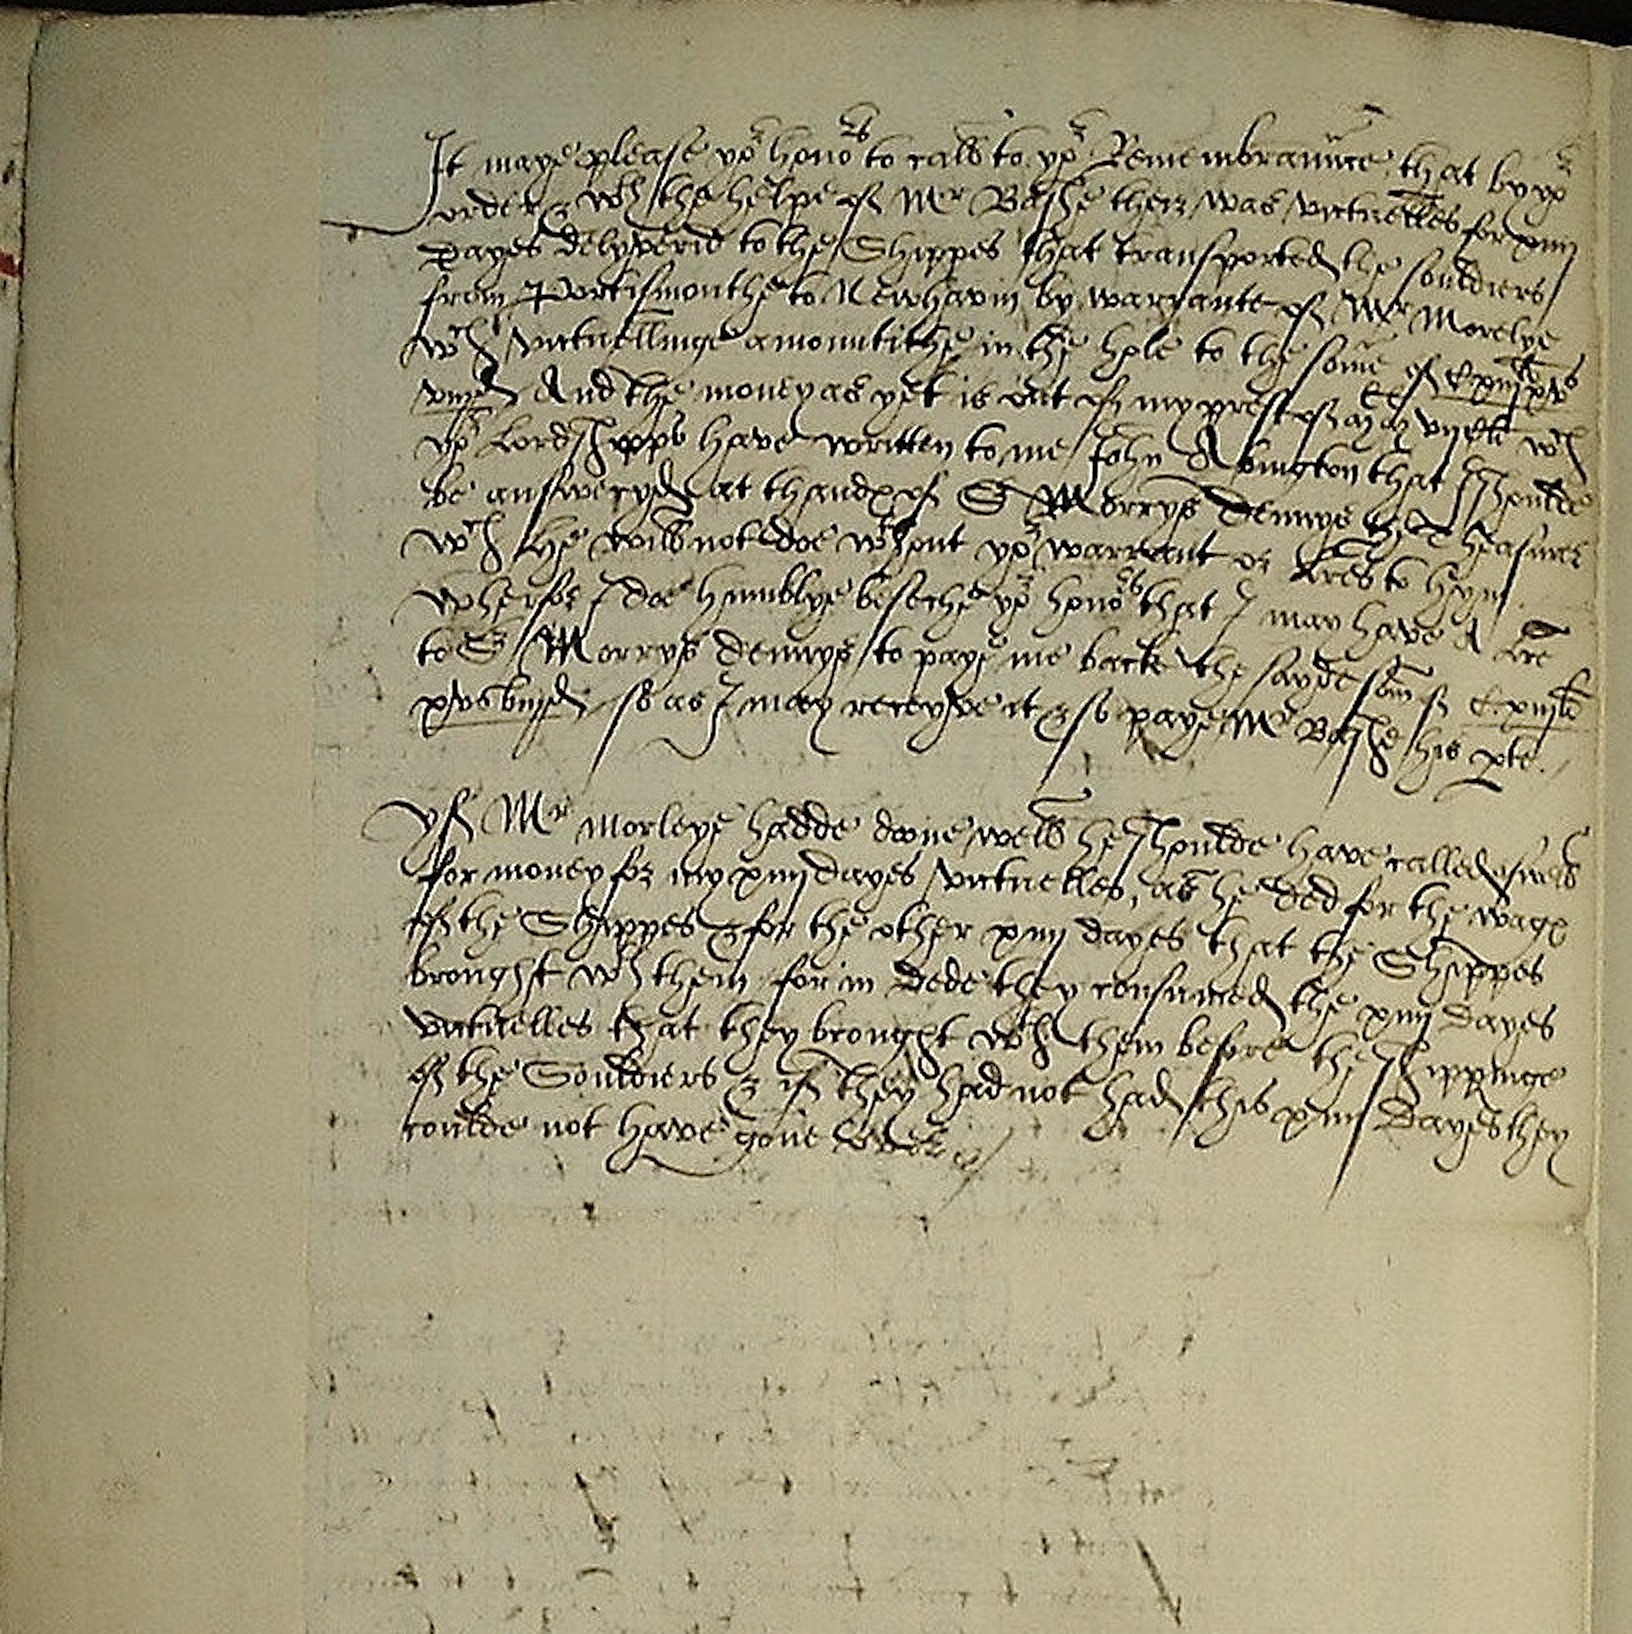 It maye please yor honors to call to yor Remembraunce that by yor
order & wth the helpe of Mr Bashe ther was victuelles for xiiij
dayes delyverid to the Shippes that transported the souldiers
from Portismouthe to Newhavin by warrante of Mr Morelye
wch victuellinge amountithe in the hole to the some of Cxiijli xvs
viijd And the money as yet is out of my prest of vijcli wch
yor Lordshipps have written to me John Abington that shoulde
be answeryd at thandes of Sr Morrys Dennys the Theasurer
wch he will not doe wthout yor warrant or lres to hym
wherfor I doe humblye beseche yor honors that I may have A lre
to Sr Morrys dennys to paye me backe the sayde som of Cxiijli
xvs viijd so as I may receyve it & so paye Mr Bashe his pte.
yf Mr Morleye hadde doone well he shoulde have called aswell
for money for my xiiij dayes victuelles, as he ded for the wages
of the Shippes & for the other xiiij dayes that the Shippes
brought wth them for in dede they consumed the xiiij dayes
victuelles that they brought wth them before the shippinge
of the Souldiers & if they had not had this xiiij dayes they
coulde not have gone over